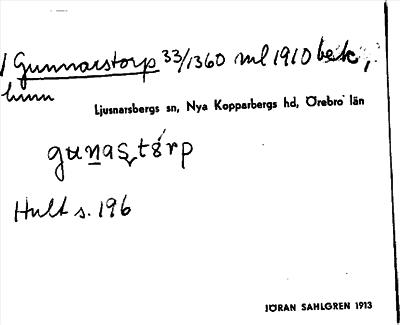 Gunnarstorp 33/1360 ml 1910 bebt,
hmn
Ljusnarsbergs sn, Nya Kopparbergs hd, Örebro län
gunastorp
Hult s. 196
JÖRAN SAHLGREN 1913